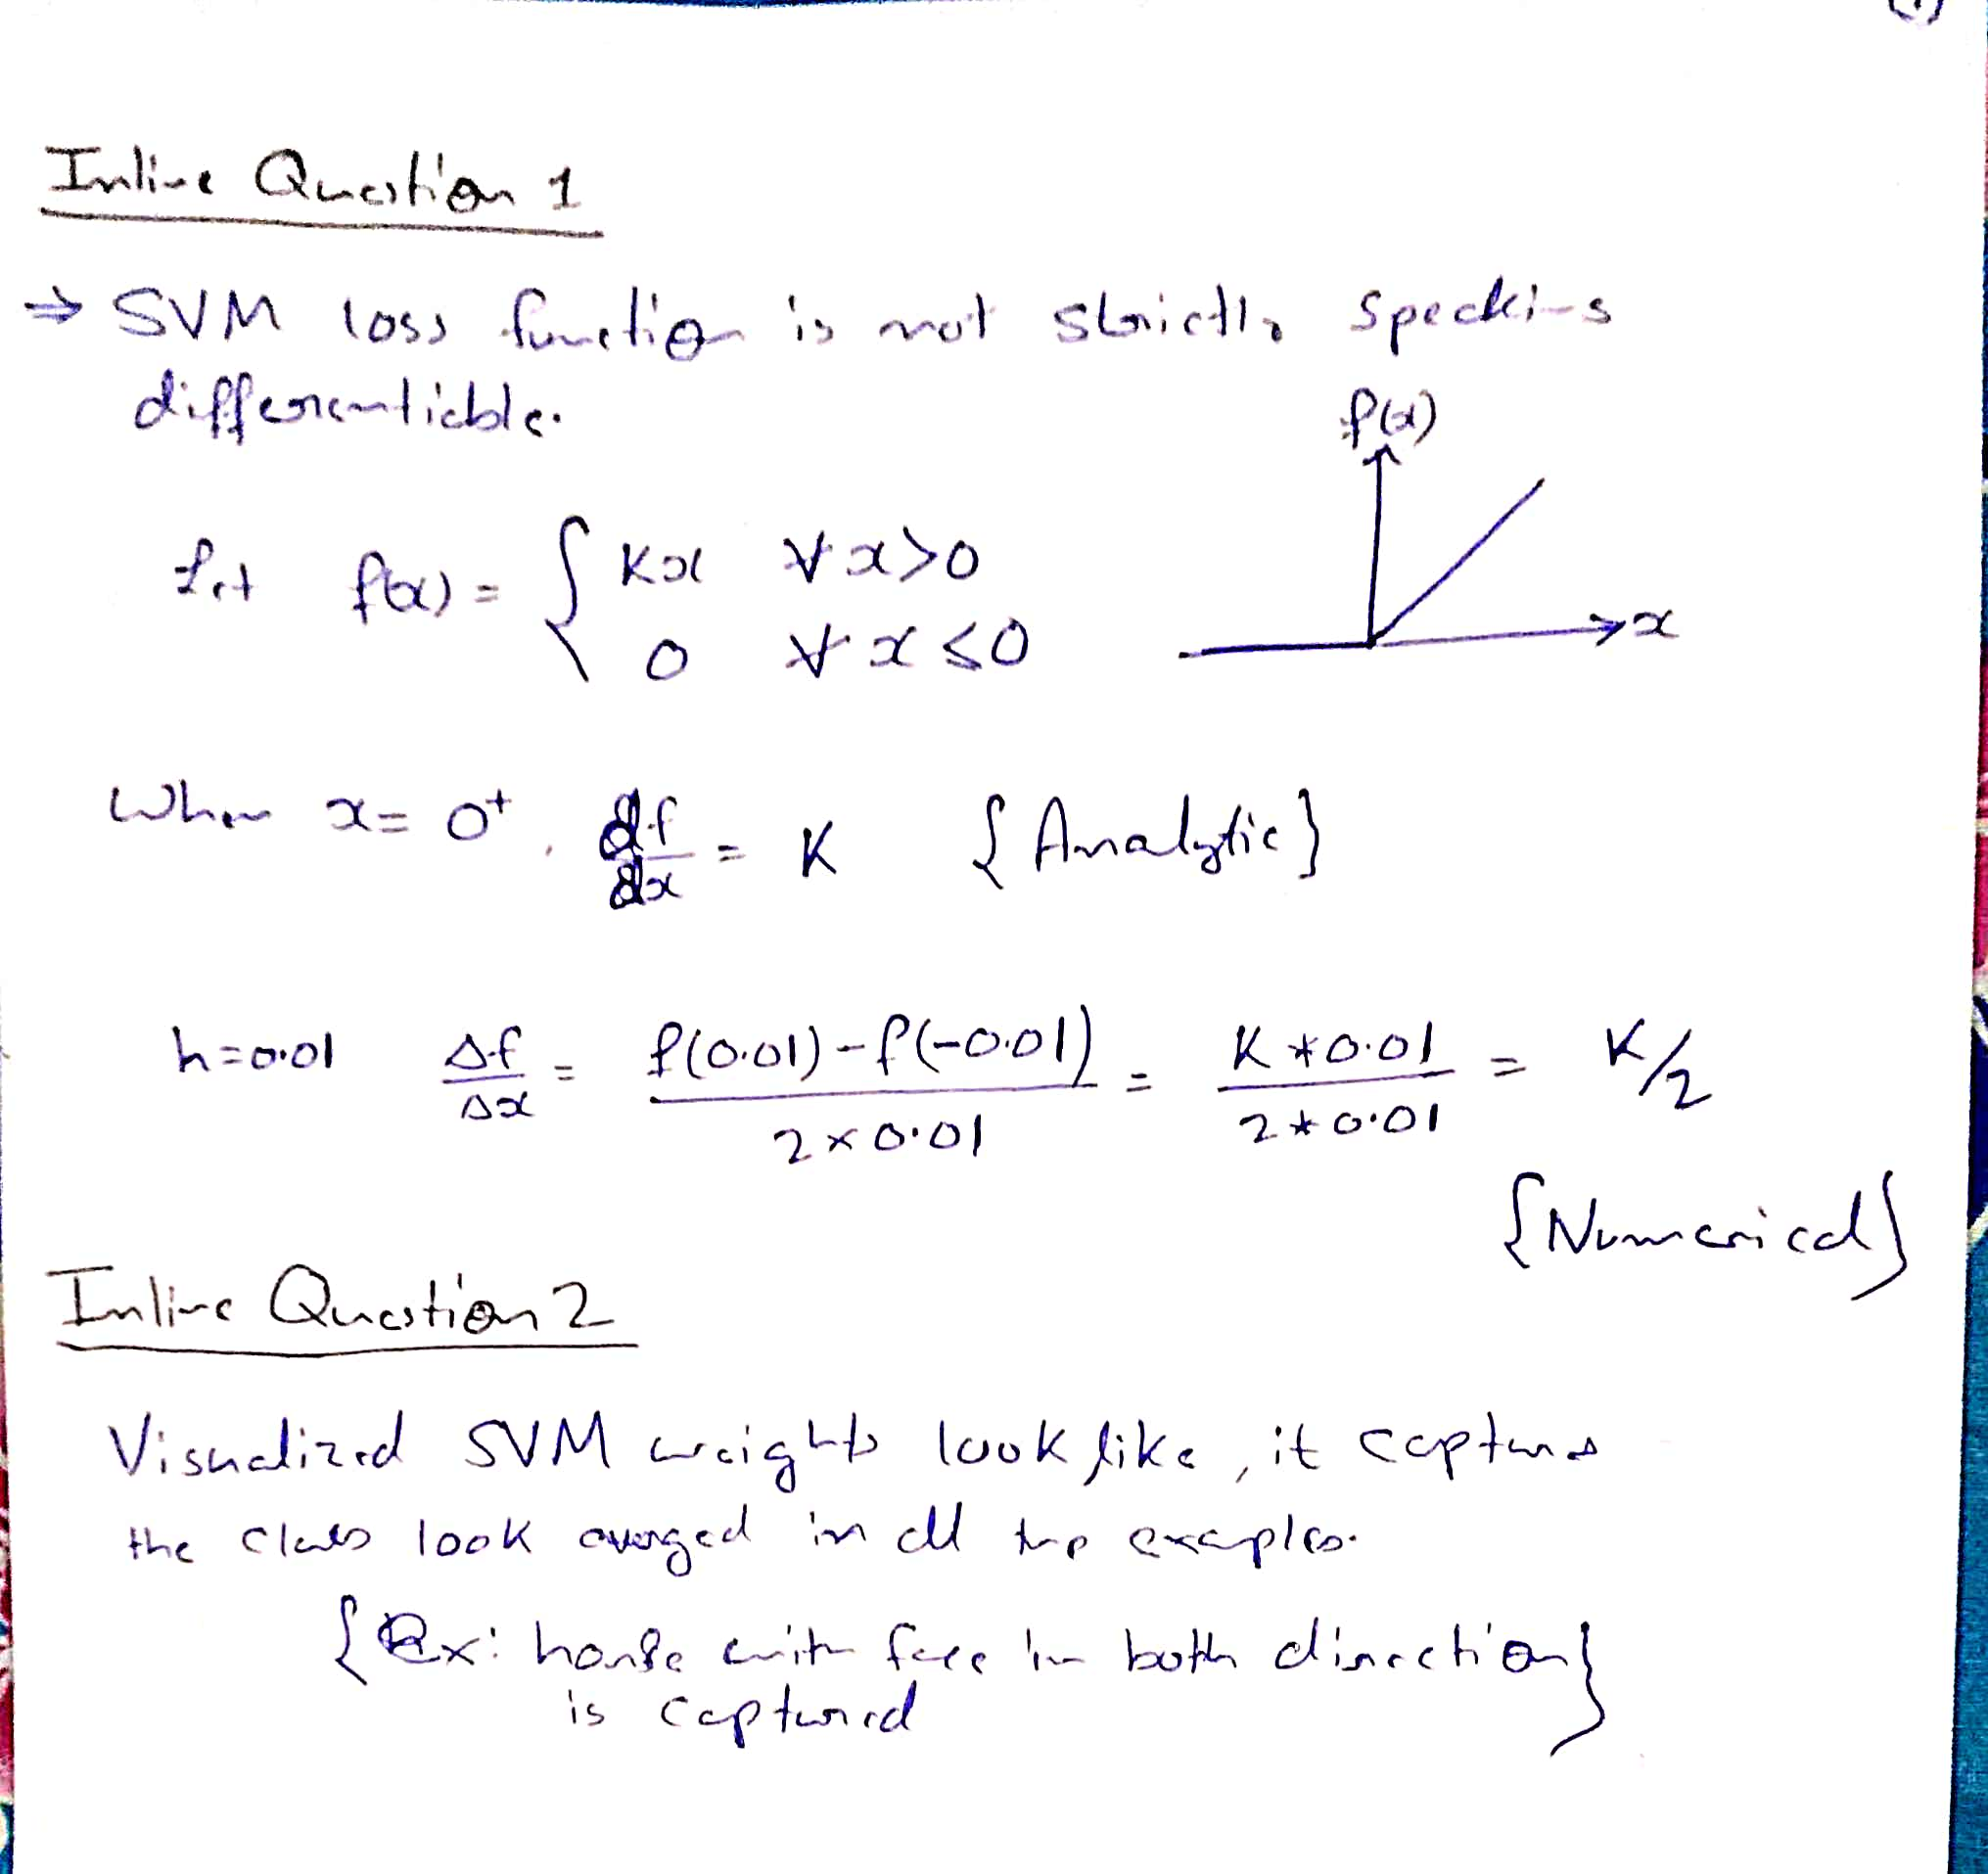 Inline Question 1
⇒ SVM loss function is not strictly speaking
differentiable.
f(x)
Let f(x) = { Kx ∀ x>0
0 ∀ x≤0
→x
When x= 0⁺, df/dx = K {Analytic}
h=0.01 Δf/Δx = (f(0.01)-f(-0.01))/(2×0.01) = (K*0.01)/(2*0.01) = K/2
{Numerical}
Inline Question 2
Visualized SVM weights look like, it captures
the class look averaged in all the examples.
{Ex: horse with face in both direction}
is captured